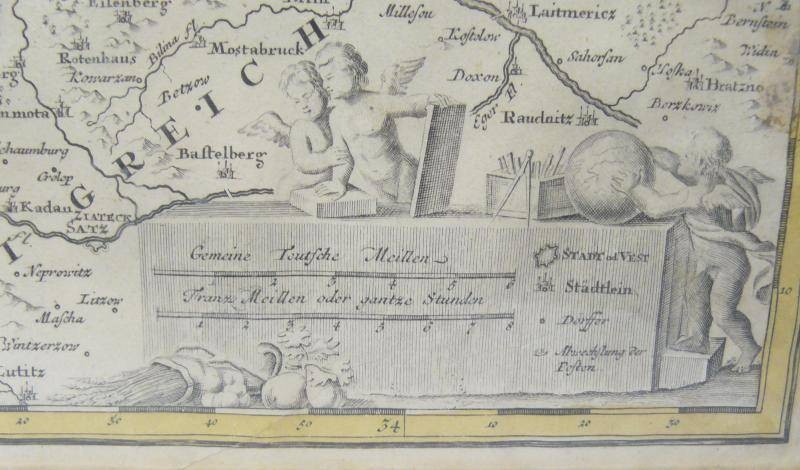 Eilenberg
Milleſou
Laitmericz
Bernſtein
Bilina fl.
Moſtabruck
Koſtolow
Rotenhaus
Kowarzan
Sahorſan
Widin
Moſka
Hratzno
Betzow
Doxon
Berzkowiz
Eger Fl.
Raudnitz
REICH
G
Baſtelberg
Grölep
Kadan
ZIATECK
SATZ
fl.
Neprowitz
Litzow
Maſcha
Wintzerzow
Lutitz
Gemeine Teutſche Meillen
1 2 3 4 5 6
Franz Meillen oder gantze Stunden
1 2 3 4 5 6 7 8
STADT od VEST
Städtlein
Dörffer
Abwechſlung der
Poſten
10
20 30 40 50 34 10 20 30